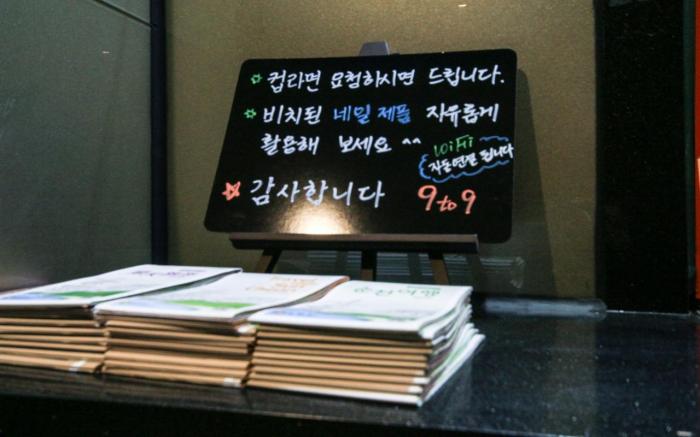 ☆ 컵라면 요청하시면 드립니다.
☆ 비치된 네일 제품 자유롭게
활용해 보세요 ^^
WiFi
자동연결 됩니다
☆ 감사합니다
9 to 9